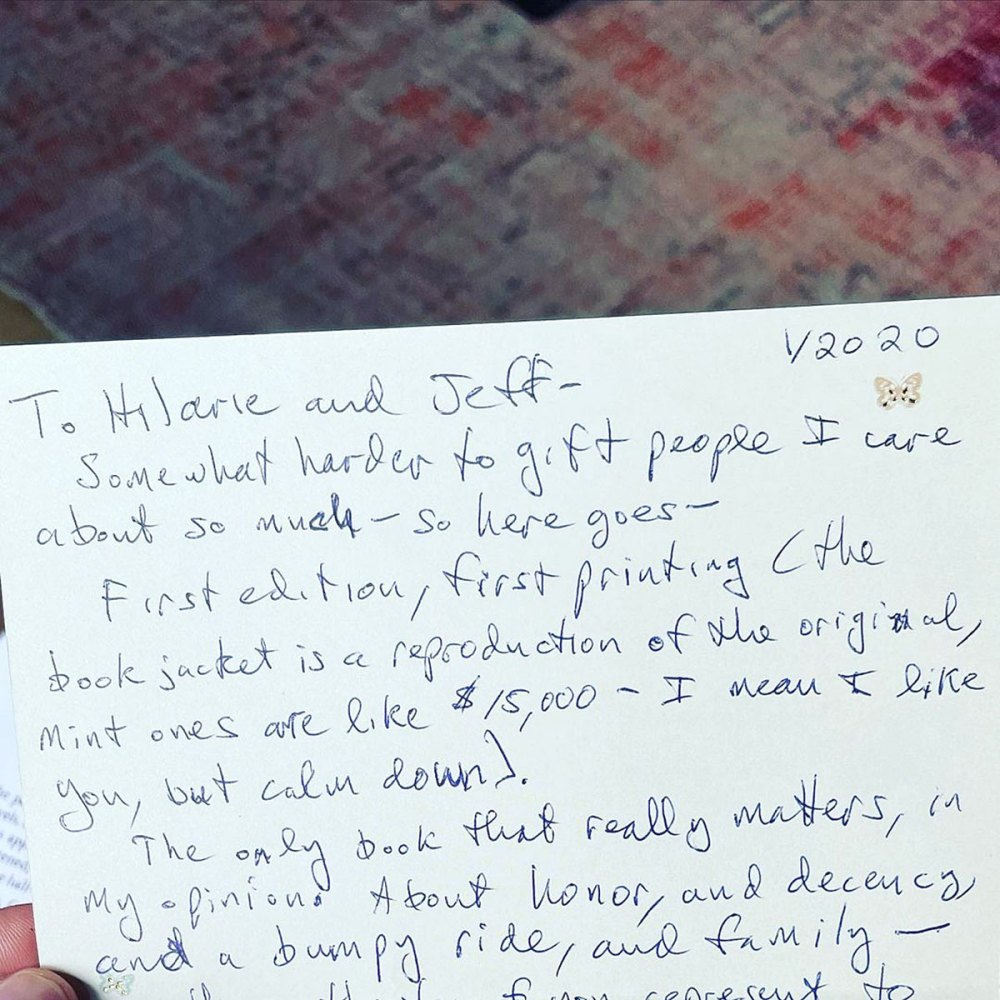 1/2020
To Hilarie and Jeff-
Somewhat harder to gift people I care
about so much - so here goes-
First edition, first printing (the
book jacket is a reproduction of the original,
mint ones are like $15,000 - I mean I like
you, but calm down).
The only book that really matters, in
my opinion. About honor, and decency,
and a bumpy ride, and family —
you represent to